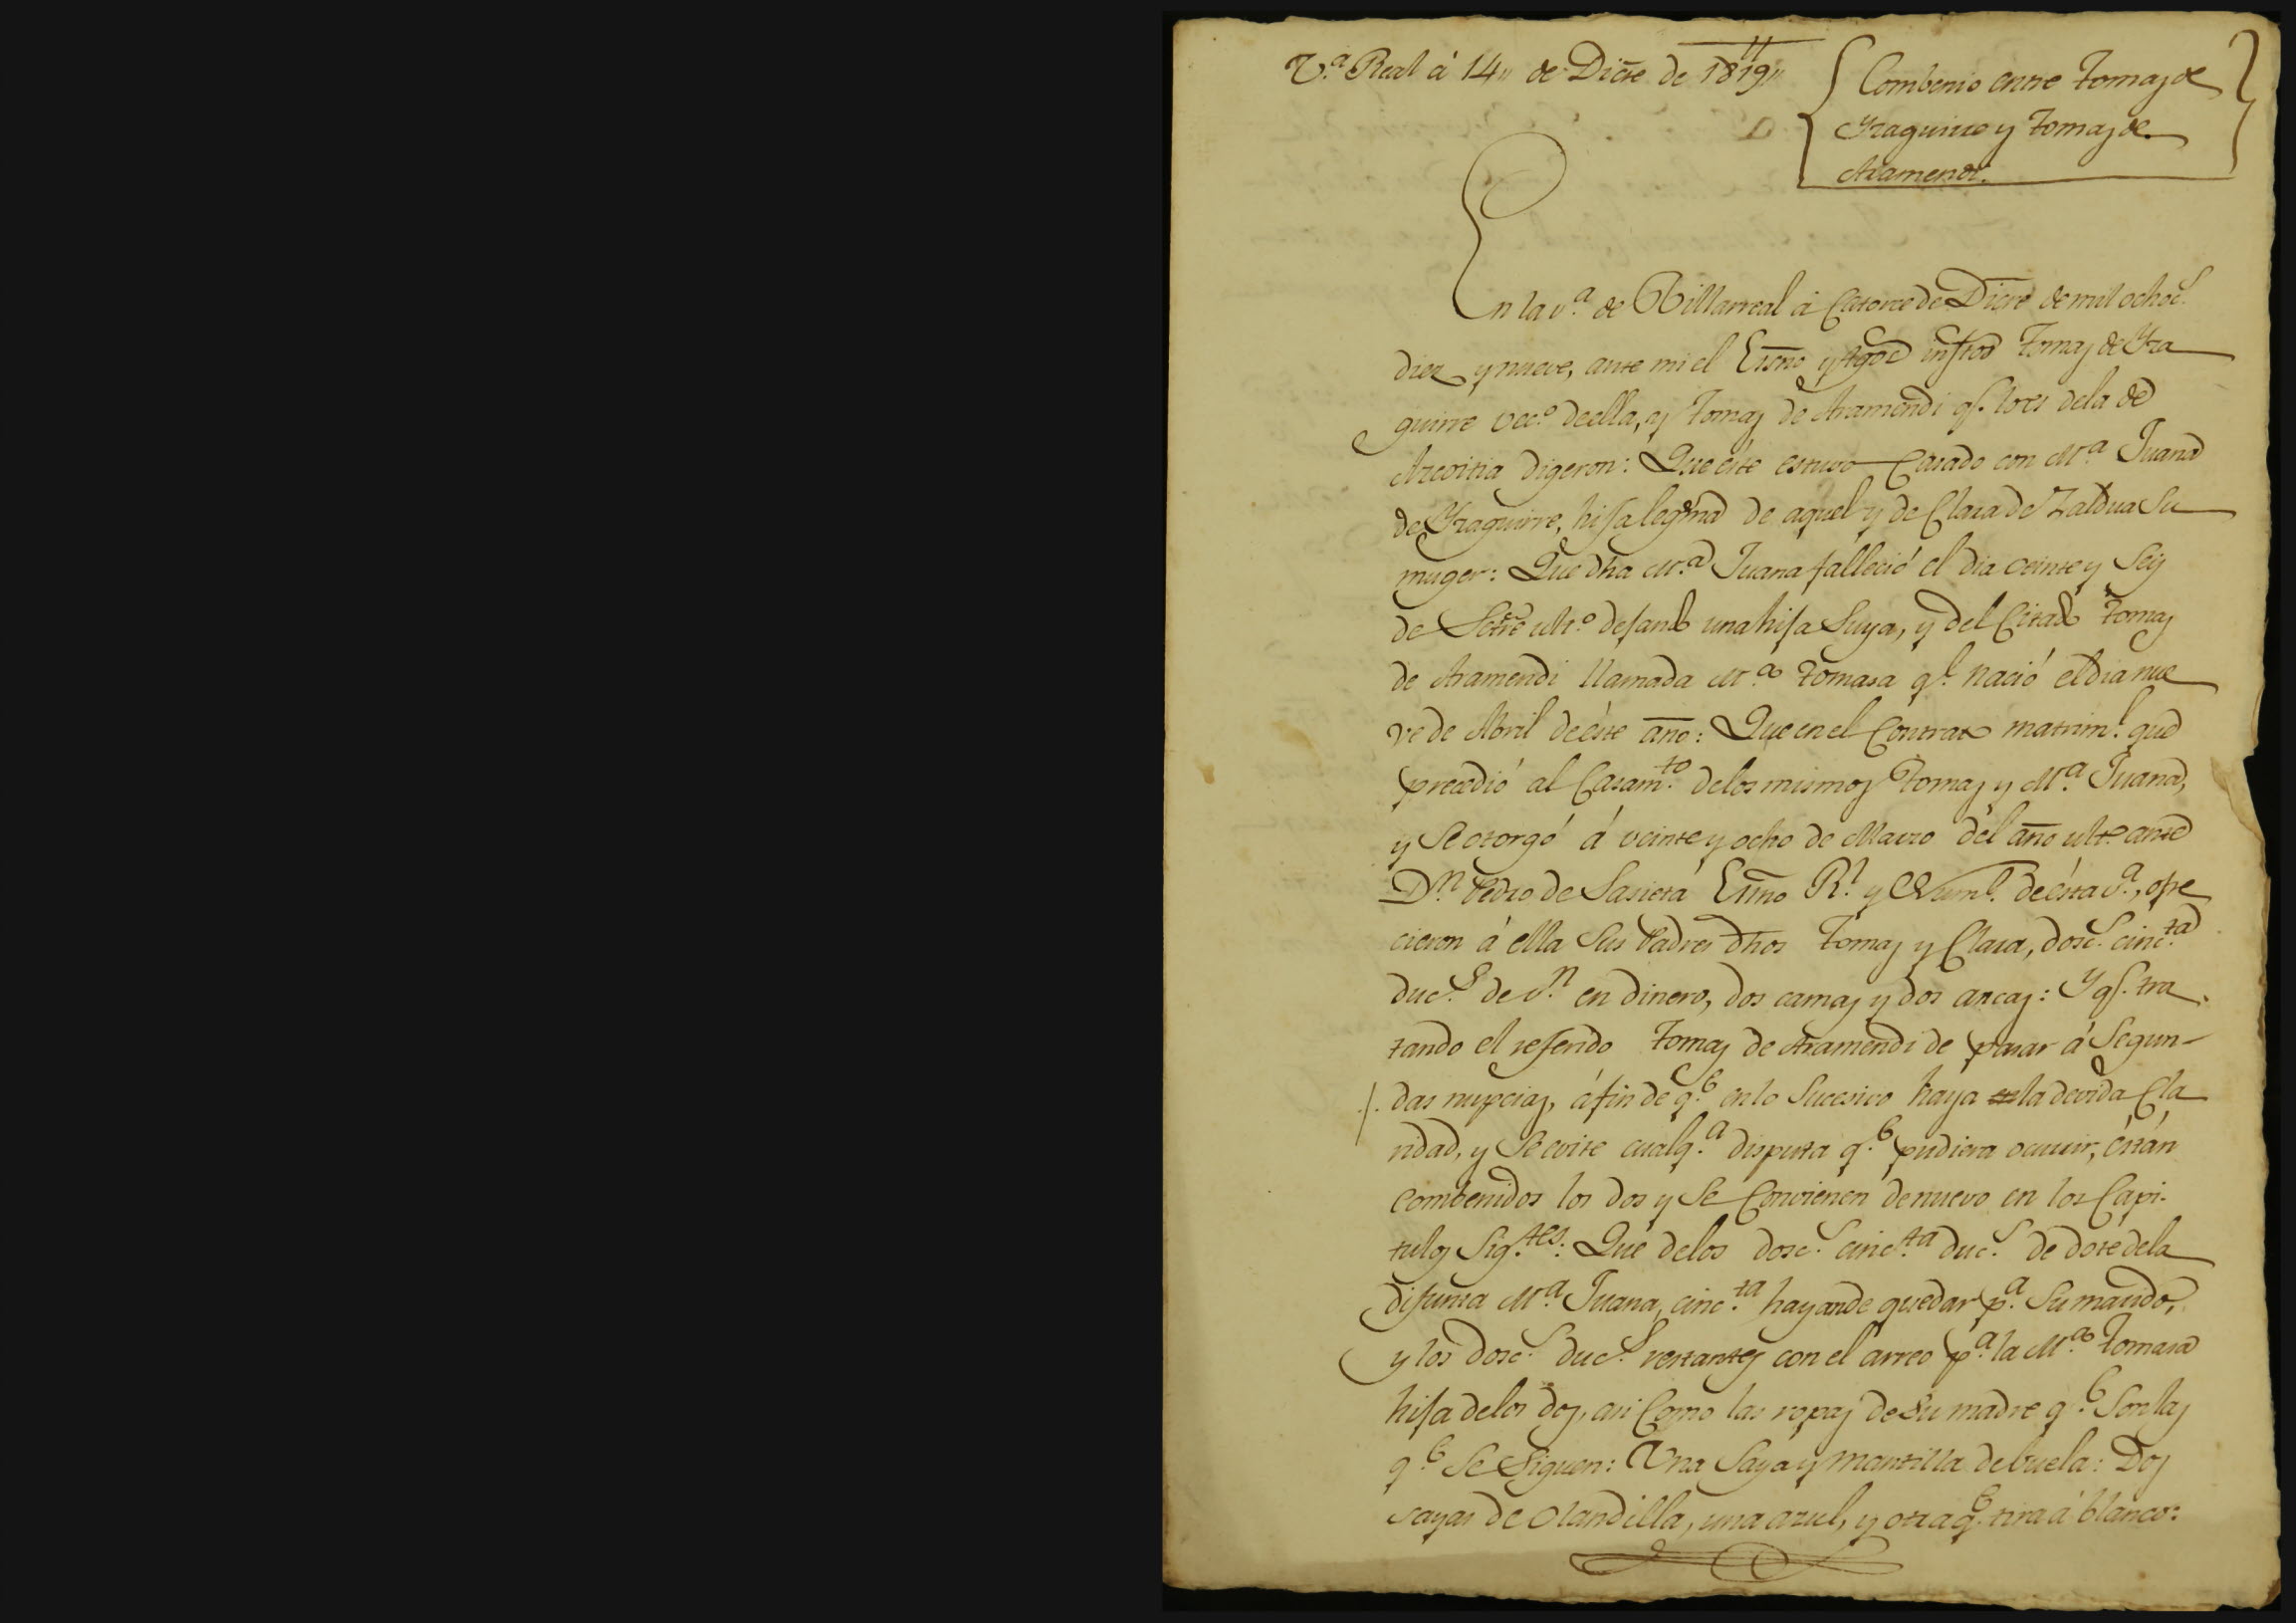 V.ª Real á 14,, de Dicre de 1819,,
Combenio entre Tomas de
Yraguirre y Tomas de
Aramendi.
En la v.ª de Villarreal á Catorce de Dicre de mil ochoc.s
diez y nueve, ante mi el Esno y tgos infros Tomas de Yra
guirre vec.º de ella, y Tomas de Aramendi q.e lo es de la de
Azcoitia digeron: Que éste estuvo Casado con M.ª Juana
de Yraguirre, hija legma de aquel y de Clara de Zaldua Su
muger: Que dha M.ª Juana falleció el dia veinte y Seis
de Setre ult.º dejando una hija Suya, y del Citado Tomas
de Aramendi llamada M.ª Tomasa q.e nació el dia nue
ve de Abril de éste año: Que en el Contrato matrim.l que
precedió al Casam.to de los mismos Tomas y M.ª Juana,
y Se otorgó á veinte y ocho de Marzo del año ult.º ante
D.n Pedro de Sasieta Esno R.l y Num.l de ésta v.ª, ofre
cieron á ella Sus Padres dhos Tomas y Clara, dosc.s cinc.ta
duc.s de v.n en dinero, dos camas y dos arcas: Y q.e tra
tando el referido Tomas de Aramendi de pasar á Segun-
das nupcias, á fin de q.e en lo Sucesivo haya la devida Cla
ridad, y Se evite cualq.a disputa q.e pudiera ocurrir, están
combenidos los dos y Se Convienen de nuevo en los Capi-
tulos Sig.tes: Que de los dosc.s cinc.ta duc.s de dote de la
difunta M.ª Juana, cinc.ta hayan de quedar p.a Su marido,
y los dosc.s duc.s restantes con el arreo p.a la M.ª Tomasa
hija de los dos, asi Como las ropas de Su madre q.e Son las
q.e Se Siguen: Una Saya y mantilla de buela: Dos
sayas de Olandilla, una azul, y otra q.e tira á blanco: